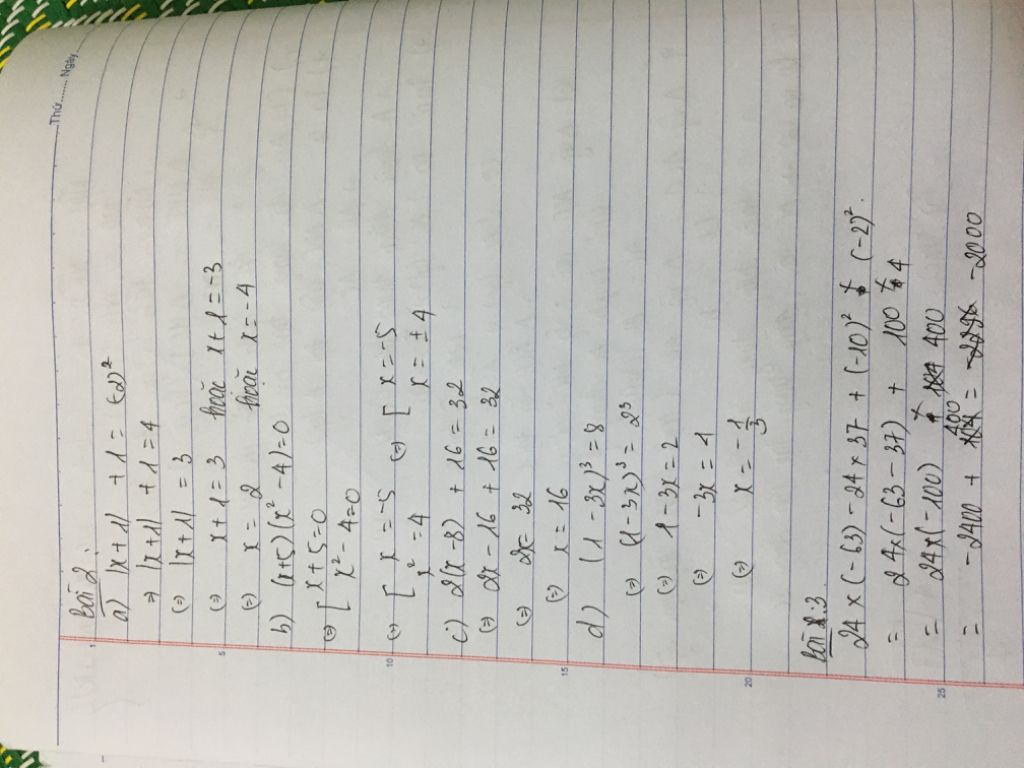 Thứ ........ Ngày
Bài 2.
a) |x+1| + 1 = (-2)²
=> |x+1| + 1 = 4
(=) |x+1| = 3
(=) x+1 = 3 hoặc x+1 = -3
(=) x = 2 hoặc x = -4
b) (x+5)(x² - 4) = 0
(=) [ x+5 = 0
x² - 4 = 0
(=) [ x = -5 (=) [ x = -5
x² = 4 x = ± 4
c) 2(x-8) + 16 = 32
(=) 2x - 16 + 16 = 32
(=) 2x = 32
(=) x = 16
d) (1 - 3x)³ = 8
(=) (1-3x)³ = 2³
(=) 1 - 3x = 2
(=) -3x = 1
(=) x = - 1/3
Bài 3
24 x (-63) - 24 x 37 + (-10)² x (-2)².
= 24 x (-63 - 37) + 100 x 4
= 24 x (-100) + 400
= -2400 + 400 = -2000
1
5
10
15
20
25